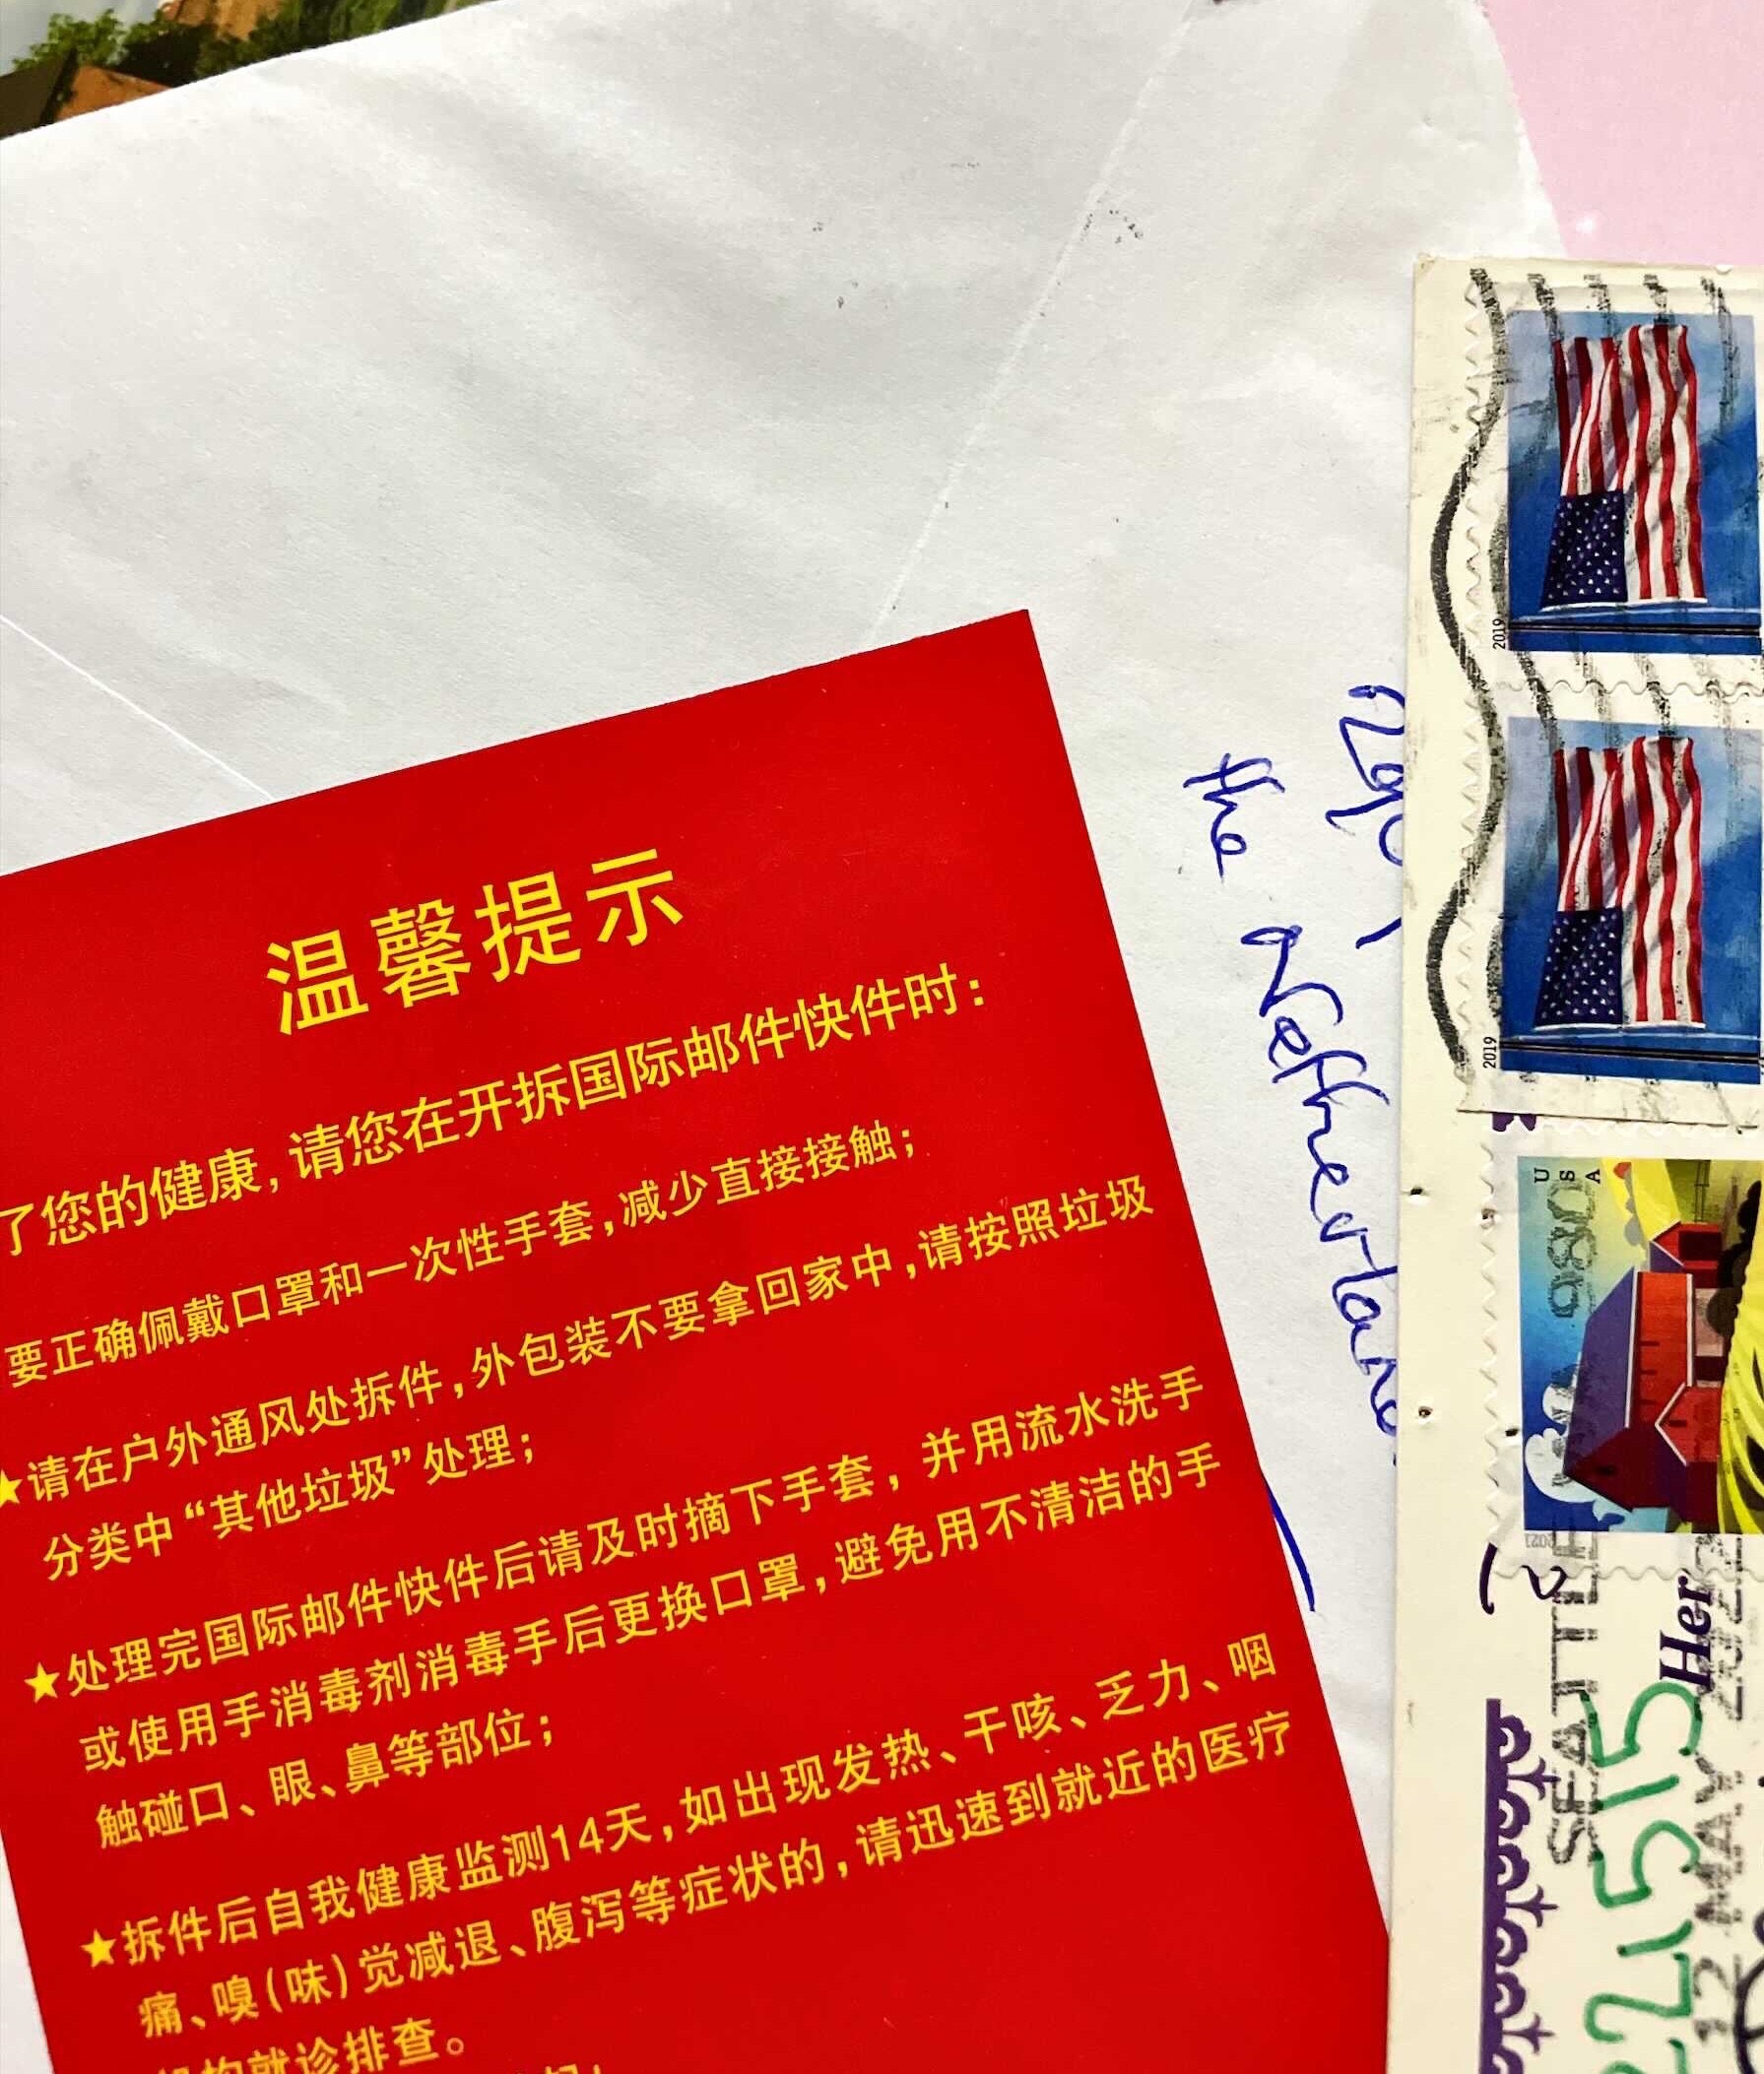 温馨提示
了您的健康,请您在开拆国际邮件快件时:
要正确佩戴口罩和一次性手套,减少直接接触;
★请在户外通风处拆件,外包装不要拿回家中,请按照垃圾
分类中“其他垃圾”处理;
★处理完国际邮件快件后请及时摘下手套,并用流水洗手
或使用手消毒剂消毒手后更换口罩,避免用不清洁的手
触碰口、眼、鼻等部位;
★拆件后自我健康监测14天,如出现发热、干咳、乏力、咽
痛、嗅(味)觉减退、腹泻等症状的,请迅速到就近的医疗
机构就诊排查。
the Netherland
2019
2019
USA
2021
SEATTLE WA 980
12 MAY 202
Her